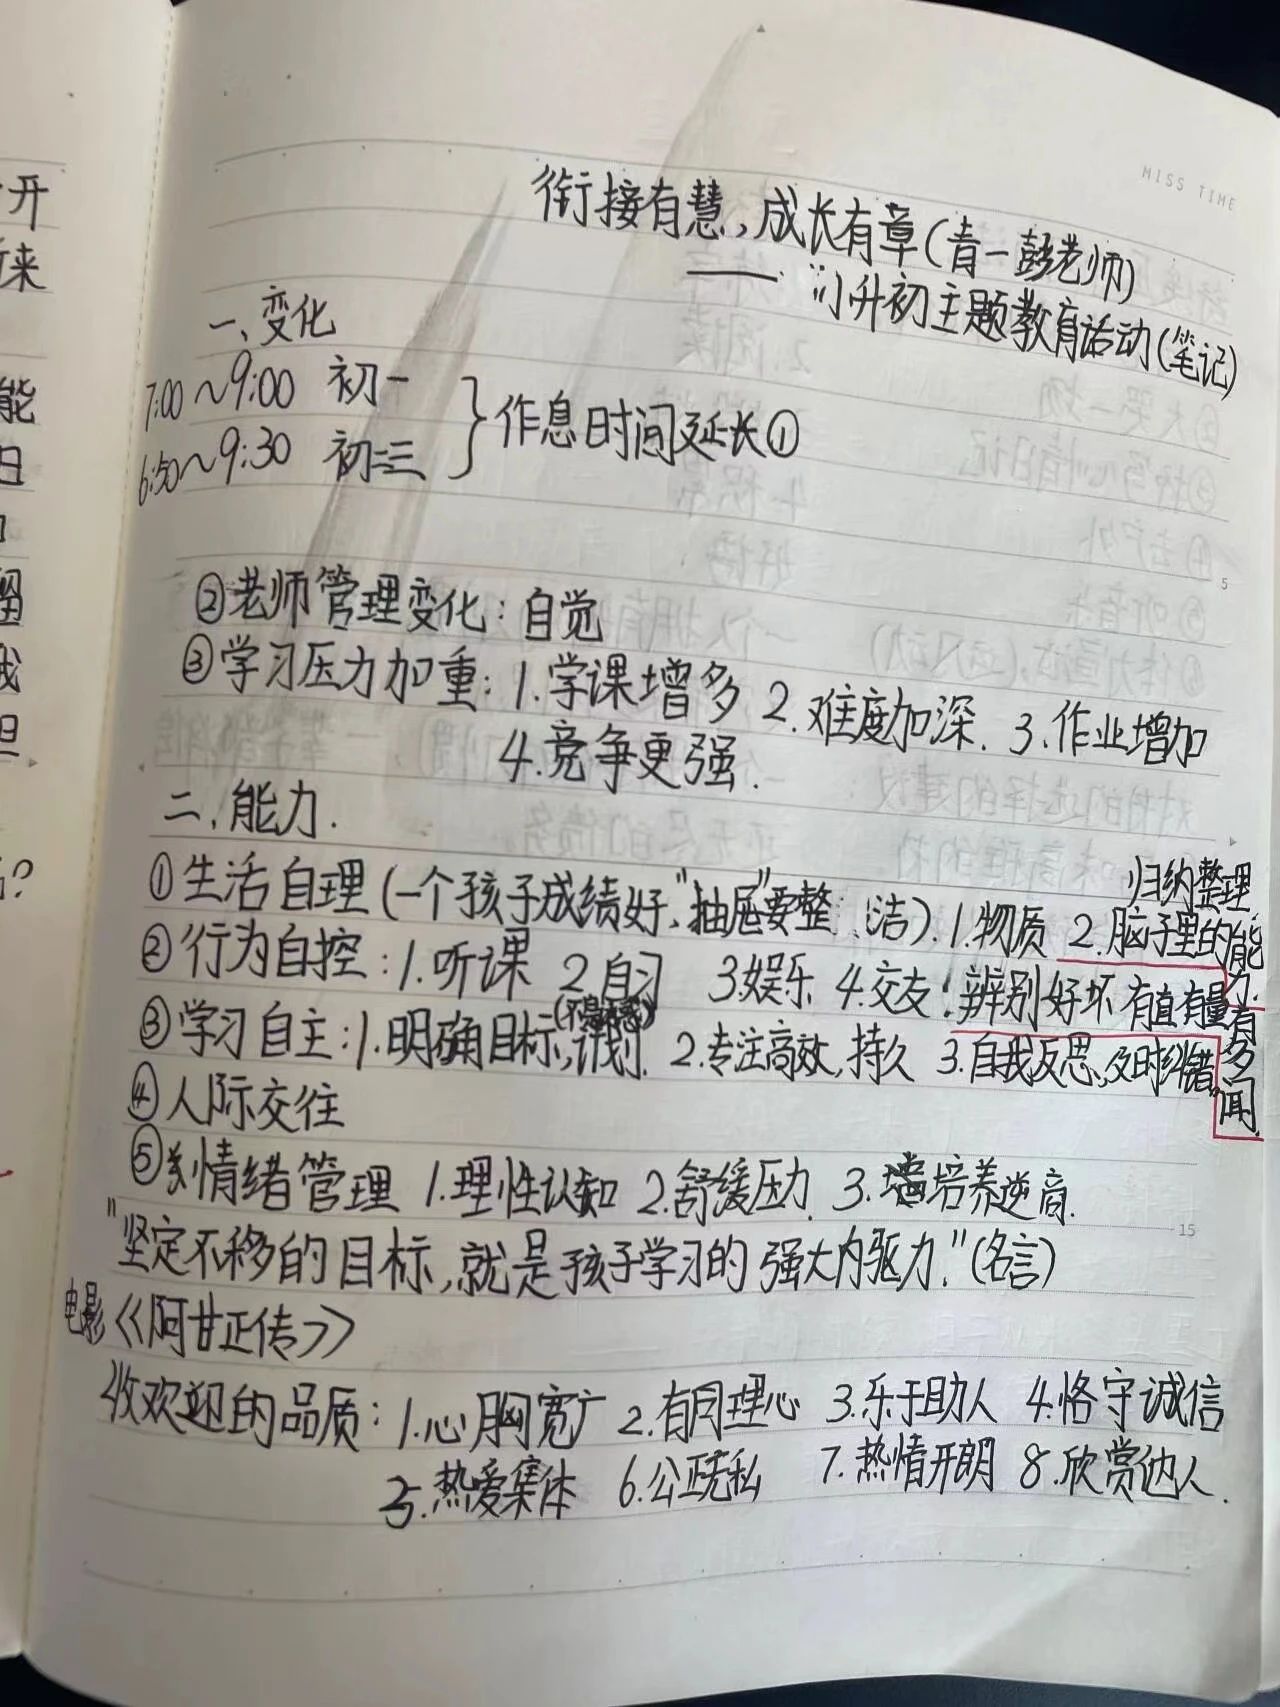 MISS TIME
衔接有慧,成长有章(青一彭老师)
——小升初主题教育活动(笔记)
一、变化
7:00~9:00 初一
6:50~9:30 初三
作息时间延长①
②老师管理变化:自觉
③学习压力加重:1.学课增多 2.难度加深. 3.作业增加
4.竞争更强.
二,能力.
①生活自理(一个孩子成绩好,"抽屉"要整洁).1.物质 2.脑子里的归纳整理能力.
②行为自控:1.听课 2.自习 3.娱乐 4.交友:辨别好坏 有直有量有多闻.
③学习自主:1.明确目标,计划. 2.专注高效,持久 3.自我反思,及时纠错.
④人际交往
⑤情绪管理 1.理性认知 2.舒缓压力. 3.培养逆商.
"坚定不移的目标,就是孩子学习的强大内驱力."(名言)
电影《阿甘正传》
收欢迎的品质:1.心胸宽广 2.有同理心 3.乐于助人 4.恪守诚信
5.热爱集体 6.公正无私 7.热情开朗 8.欣赏他人.
5
15
开
来
能
日
留
我
但
?